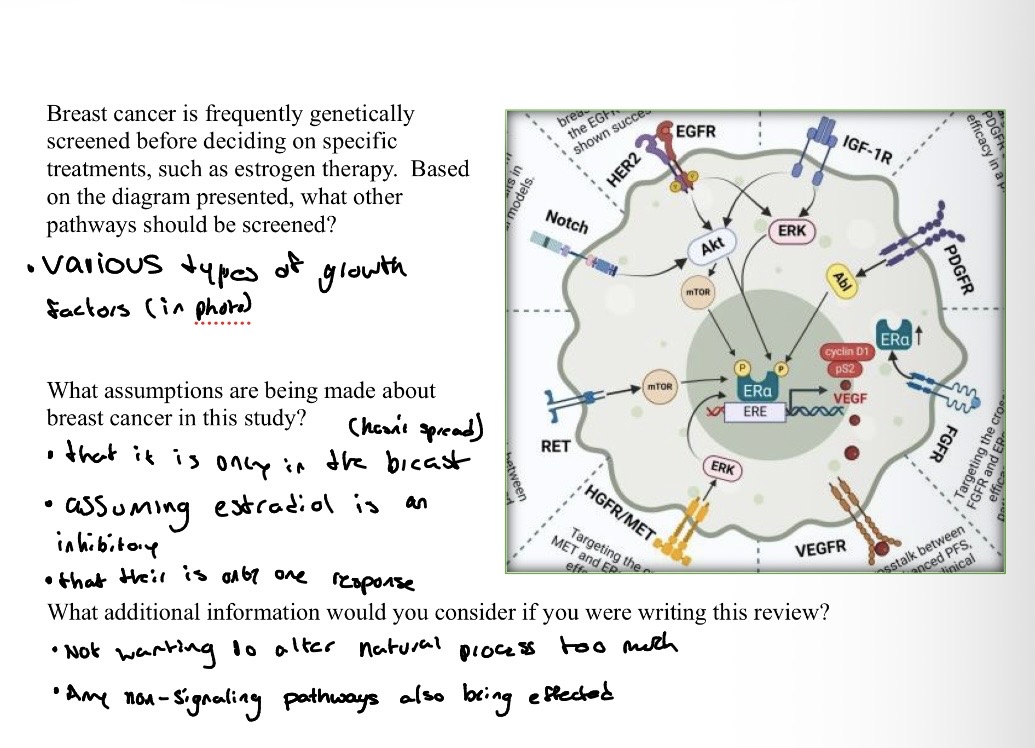 Breast cancer is frequently genetically
screened before deciding on specific
treatments, such as estrogen therapy.  Based
on the diagram presented, what other
pathways should be screened?
• various types of growth
factors (in photo)
What assumptions are being made about
breast cancer in this study?
(hasn't spread)
• that it is only in the breast
• assuming estradiol is an
inhibitory
• that their is only one response
What additional information would you consider if you were writing this review?
• Not wanting to alter natural process too much
• Any non-signaling pathways also being effected
the EGF
shown succe
models.
EGFR
HER2
IGF-1R
PDGFR
efficacy in a
Notch
Akt
ERK
PDGFR
mTOR
Abl
P
P
ERα
ERE
cyclin D1
pS2
VEGF
ERα
RET
mTOR
ERK
HGFR/MET
FGFR
VEGFR
between
Targeting the
MET and ER
Targeting the cros
FGFR and ER
effic
crosstalk between
enhanced PFS,
clinical